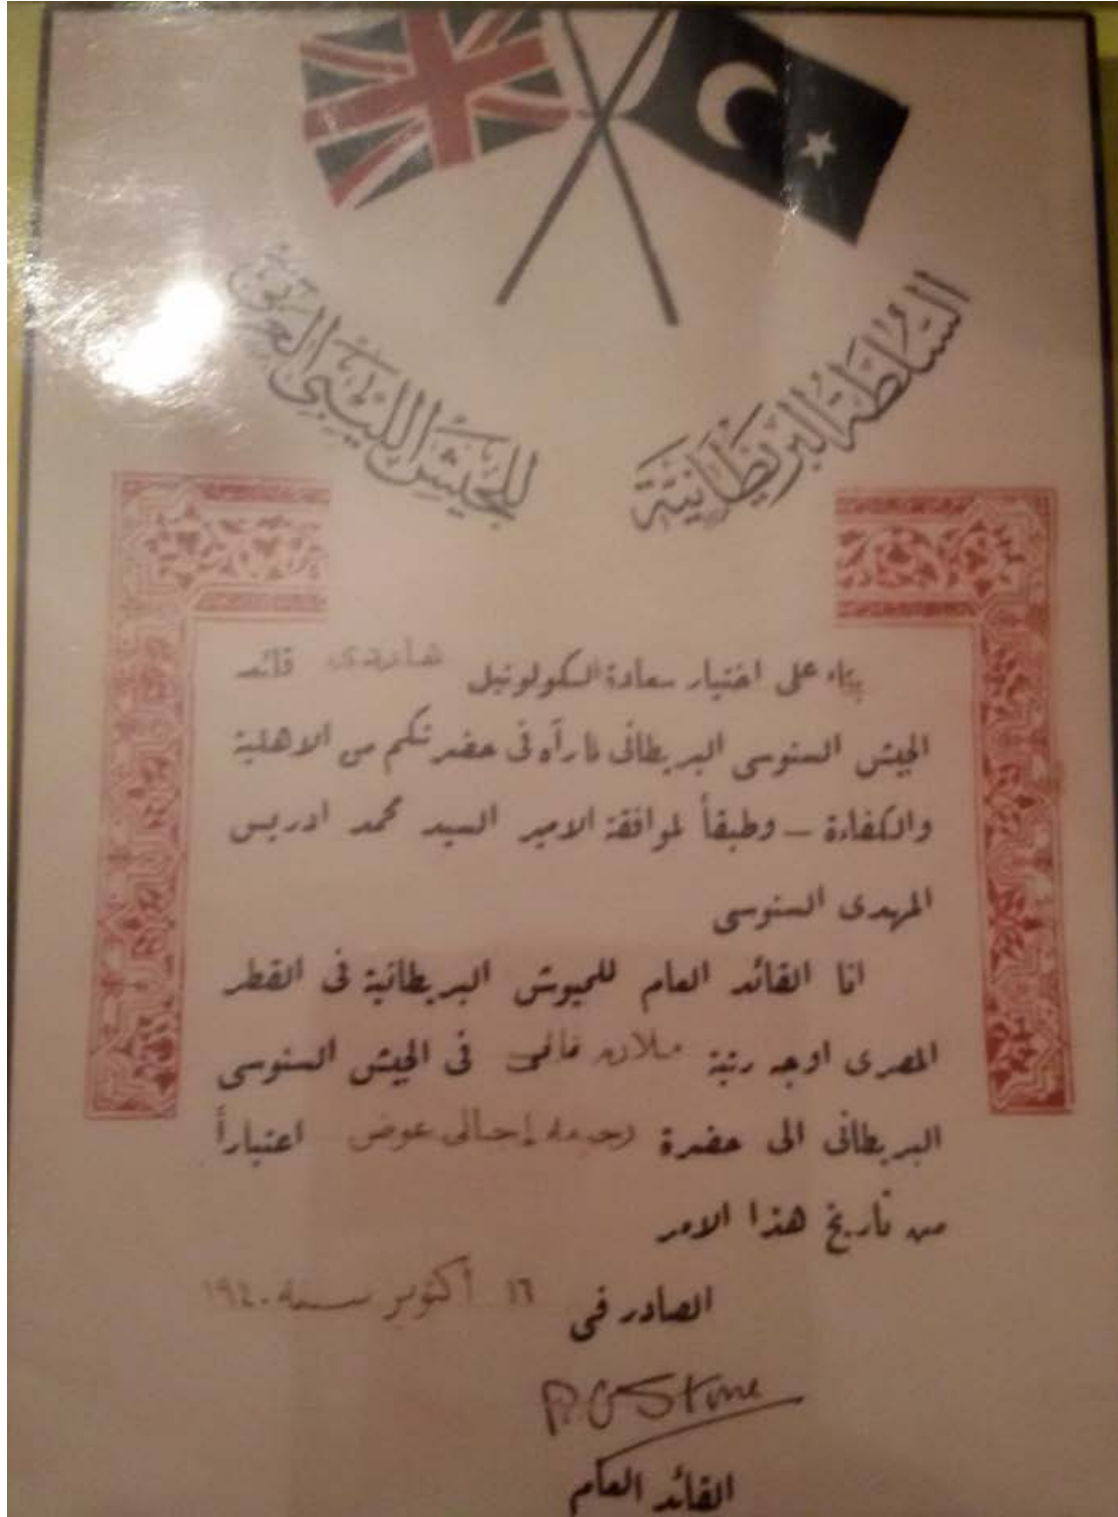 السلطة البريطانية
للجيش الليبي العربي
بناء على اختيار سعادة الكولونيل قائد
الجيش السنوسى البريطانى نارآه فى حضرتكم من الاهلية
والكفاءة – وطبقاً لموافقة الامير السيد محمد ادريس
المهدى السنوسى
انا القائد العام للجيوش البريطانية فى القطر
المصرى اوجه رتبة ملازم فى الجيش السنوسى
البريطانى الى حضرة عوض اعتباراً
من تاريخ هذا الامر
الصادر فى ١٦ أكتوبر سنة ١٩٤٠
Stone
القائد العام